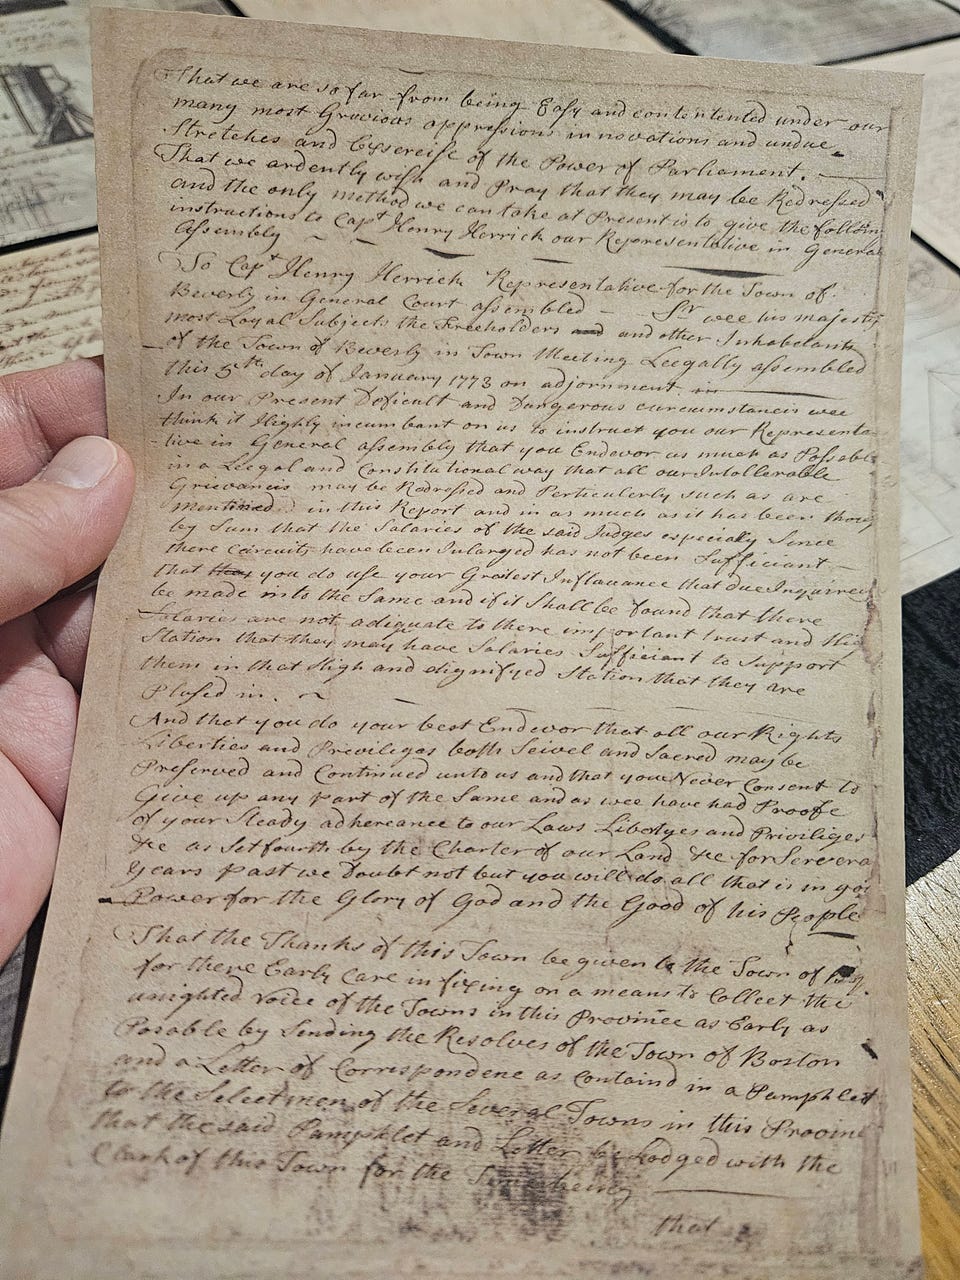 That we are so far from being Easy and contentented under our
many most Grevious oppressions innovations and undue
Stretches and Exsereise of the Power of Parliament.
That we ardently wish and Pray that they may be Redressed
and the only method we can take at Present is to give the follow
instructions to Capt Henry Herrick our Representative in General
Assembly
To Capt Henry Herrick Representative for the Town of
Beverly in General Court assembled — Sr wee his majesty
most Loyal Subjects the Freeholders and and other Inhabetants
of the Town of Beverly in Town Meeting Leegally assembled
this 5th day of January 1773 on adjornment
In our Present Deficult and Dangerous curcumstancis wee
think it Highly incumbant on us to instruct you our Representa-
-tive in General assembly that you Endevor as much as Possable
in a Leegal and Constitutional way that all our Intollerable
Grievancis may be Redressed and Perticulerly such as are
mentined in this Report and in as much as it has been thou
by Sum that the Salaries of the said Judges especialy Since
there Circuits have been Inlarged has not been Sufficiant
that they you do use your Gratest Influance that due Inquirey
be made into the Same and if it Shall be found that there
Salaries are not adiguate to there important trust and
Station that they may have Salaries Sufficiant to Support
them in that High and dignifyed Station that they are
Plased in.
And that you do your best Endevor that all our Rights
Liberties and Previliges both Seivel and Sacred may be
Preserved and Continued unto us and that you Never Consent to
Give up any part of the Same and as wee have had Proofe
of your Steady adhereance to our Laws Libertyes and Priviliges
&c as Set fourth by the Charter of our Land &c for Severa
Years past we Doubt not but you will do all that is in yo
Power for the Glory of God and the Good of his People
That the Thanks of this Town be given to the Town of
for there Early Care in fixing on a means to Collect the
unighted voice of the Towns in this Province as Early as
Posable by Sending the Resolves of the Town of Boston
and a Letter of Correspondene as Containd in a Pamphlet
to the Selectmen of the Several Towns in this Provin
that the said Pamphlet and Letter be Lodged with the
Clark of this Town for the Time being
that